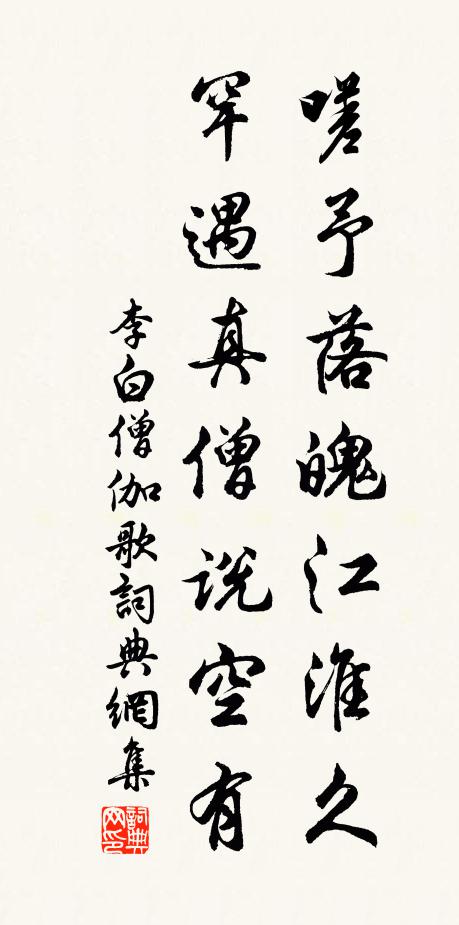 嗟予落魄江淮久
罕遇真僧説空有
李白僧伽歌詞典網集
詞典網印